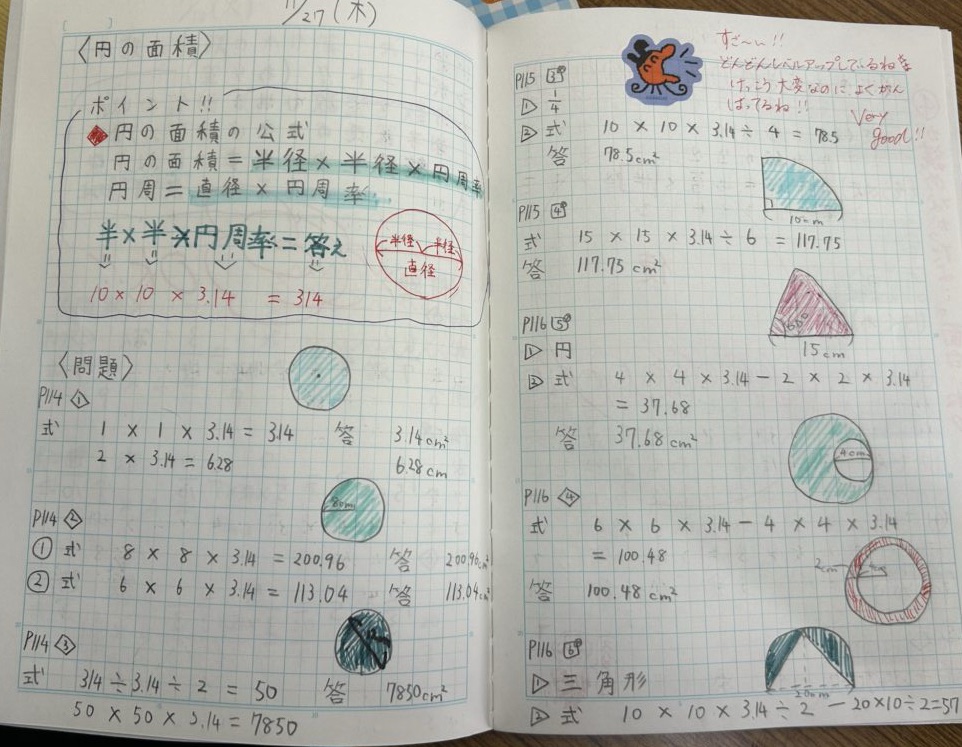 11/27(木)
〈円の面積〉
ポイント!!
円の面積の公式
円の面積=半径×半径×円周率
円周=直径×円周率
半×半×円周率=答え
10×10×3.14=314
半径 半径
直径
〈問題〉
P114 ①
式 1×1×3.14=3.14 答 3.14cm²
2×3.14=6.28 6.28cm
8cm
P114 ②
① 式 8×8×3.14=200.96 答 200.96cm²
② 式 6×6×3.14=113.04 答 113.04cm²
P114 ③
式 314÷3.14÷2=50 答 7850cm²
50×50×3.14=7850
すご〜い!!
どんどんレベルアップしているね
けっこう大変なのによくがん
ばってるね!!
Very
good!!
P115 3
1 1/4
2 式 10×10×3.14÷4=78.5
答 78.5cm²
10cm
P115 4
式 15×15×3.14÷6=117.75
答 117.75cm²
60°
15cm
P116 5
1 円
2 式 4×4×3.14-2×2×3.14
=37.68
答 37.68cm²
4cm
P116 ④
式 6×6×3.14-4×4×3.14
=100.48
2cm
答 100.48cm²
P116 6
1 三角形
20cm
2 式 10×10×3.14÷2-20×10÷2=57